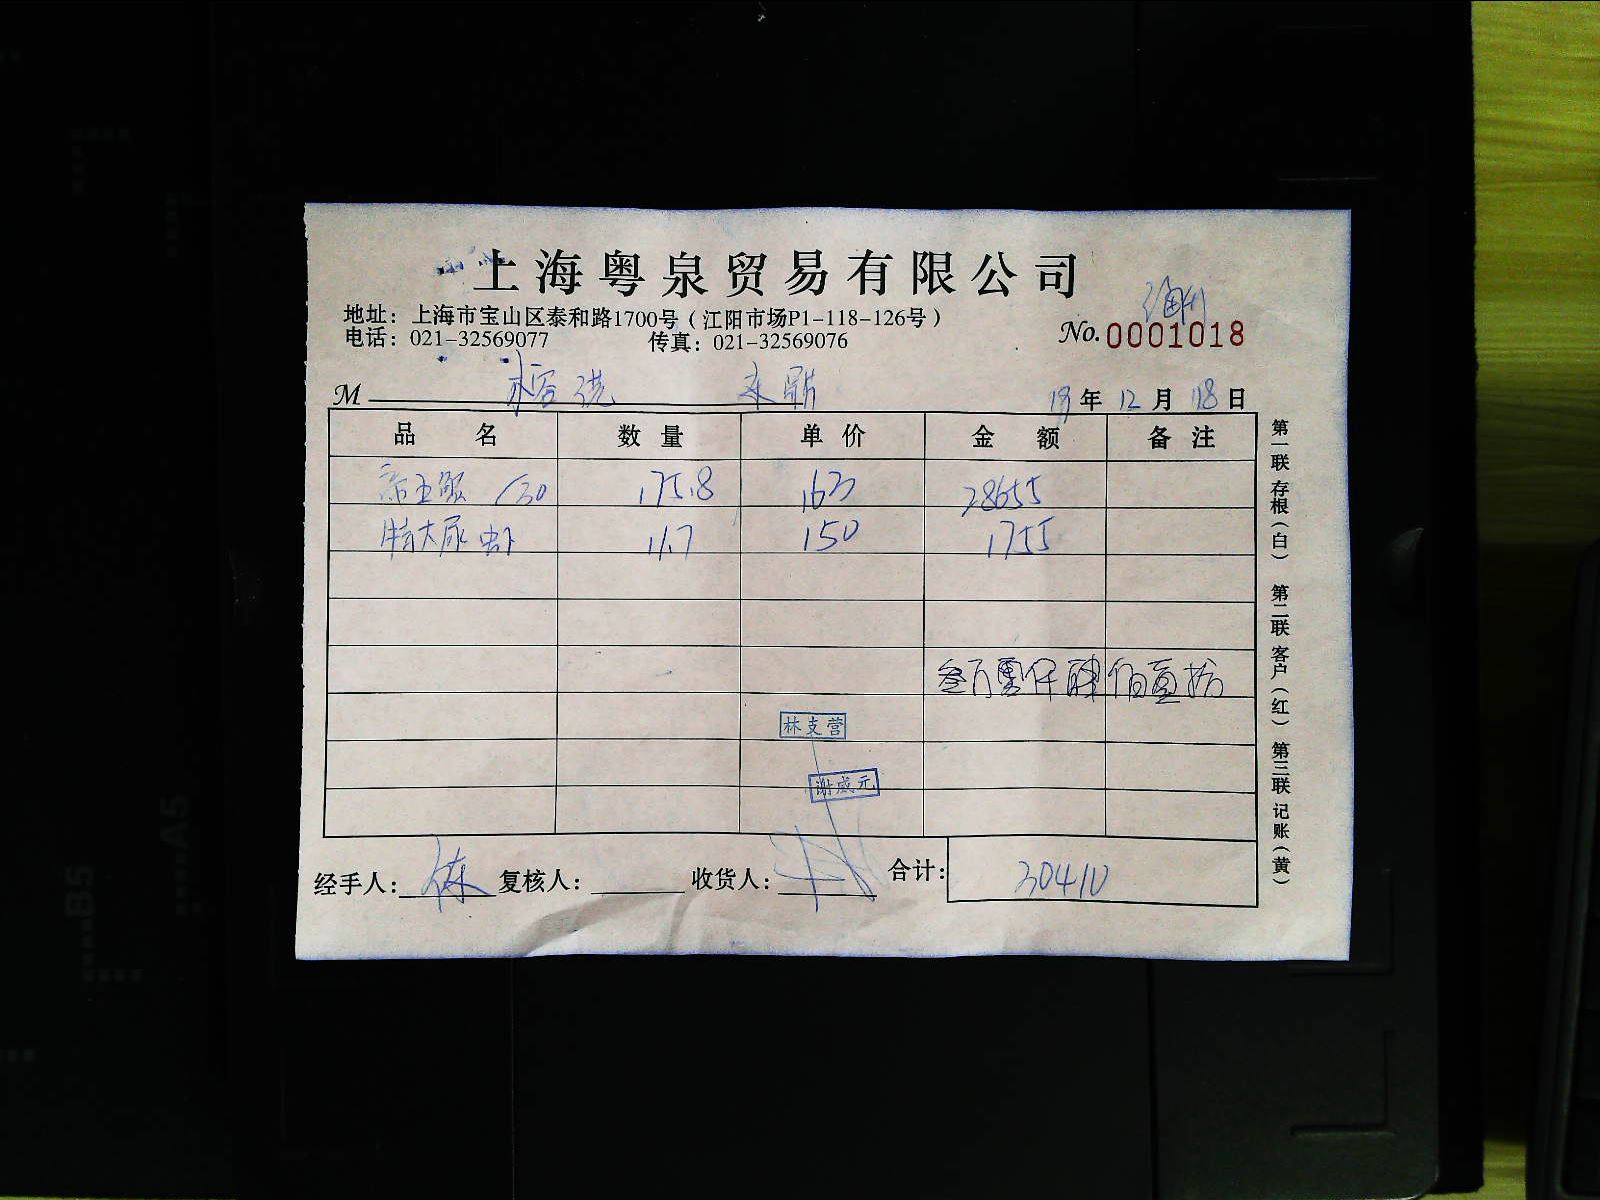 上海粤泉贸易有限公司
地址：上海市宝山区泰和路1700号（江阳市场P1-118-126号）
电话：021-32569077 传真：021-32569076
No.0001018
M
19年12月18日
品名 数量 单价 金额 备注
帝王蟹 /30 175.8 163 28655
特大尿虾 11.7 150 1755
叁万零仟肆佰壹拾
林支营
谢咸元
经手人： 复核人： 收货人： 合计： 30410
第一联存根（白） 第二联客户（红） 第三联记账（黄）
B5
A5